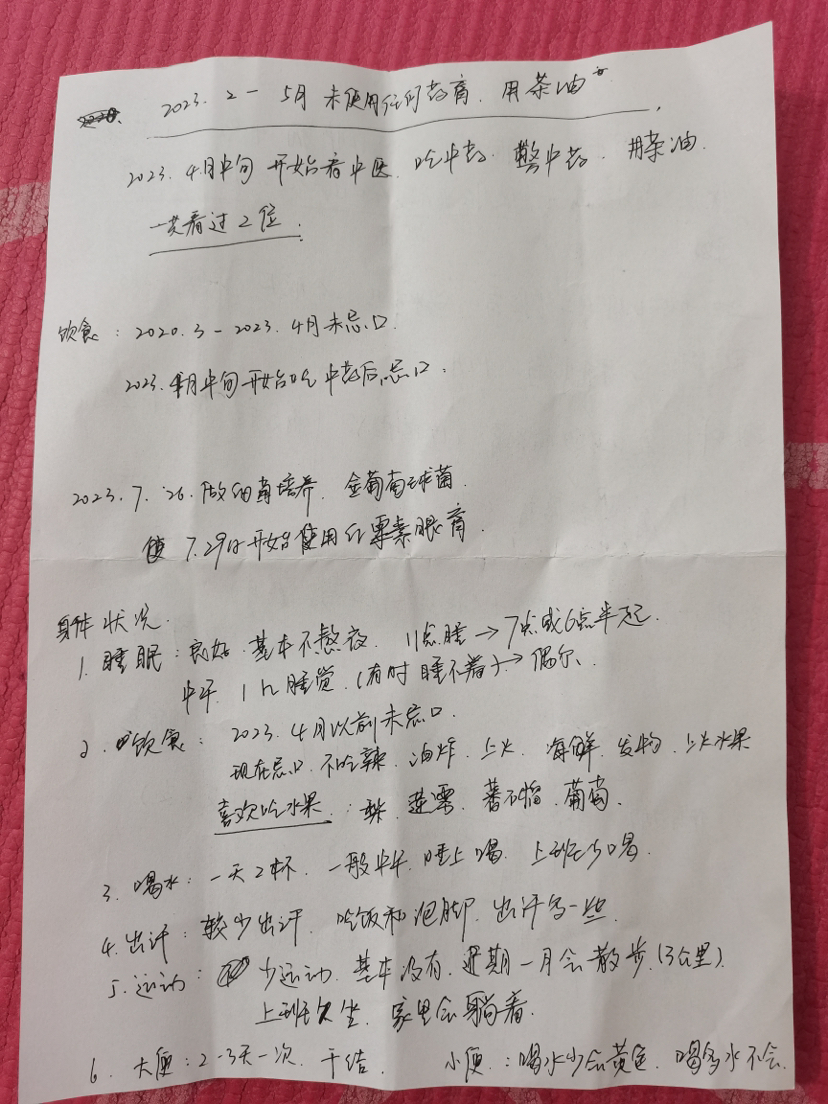 2023. 2 - 5月 未使用任何药膏. 用茶油
2023. 4月中旬 开始看中医. 吃中药. 擦中药. 用茶油.
一共看过2位.
饮食: 2020.3 - 2023.4月未忌口.
2023.4月中旬开始吃中药后忌口.
2023.7.26. 做细菌培养. 金葡萄球菌.
7.29日开始使用红霉素眼膏.
身体状况.
1. 睡眠: 良好. 基本不熬夜. 11点睡→7点或6点半起
中午. 1h睡觉. (有时睡不着)→偶尔.
2. 饮食: 2023.4月以前未忌口.
现在忌口. 不吃辣. 油炸. 上火. 海鲜. 发物. 上火水果
喜欢吃水果: 莲雾. 蕃石榴. 葡萄.
3. 喝水: 一天2杯. 一般中午. 晚上喝. 上班少喝.
4. 出汗: 较少出汗. 吃饭和泡脚. 出汗多一些.
5. 运动: 少运动. 基本没有. 近期一月会散步.(3公里).
上班久坐. 家里会躺着.
6. 大便: 2-3天一次. 干结. 小便: 喝水少会黄色. 喝多水不会.